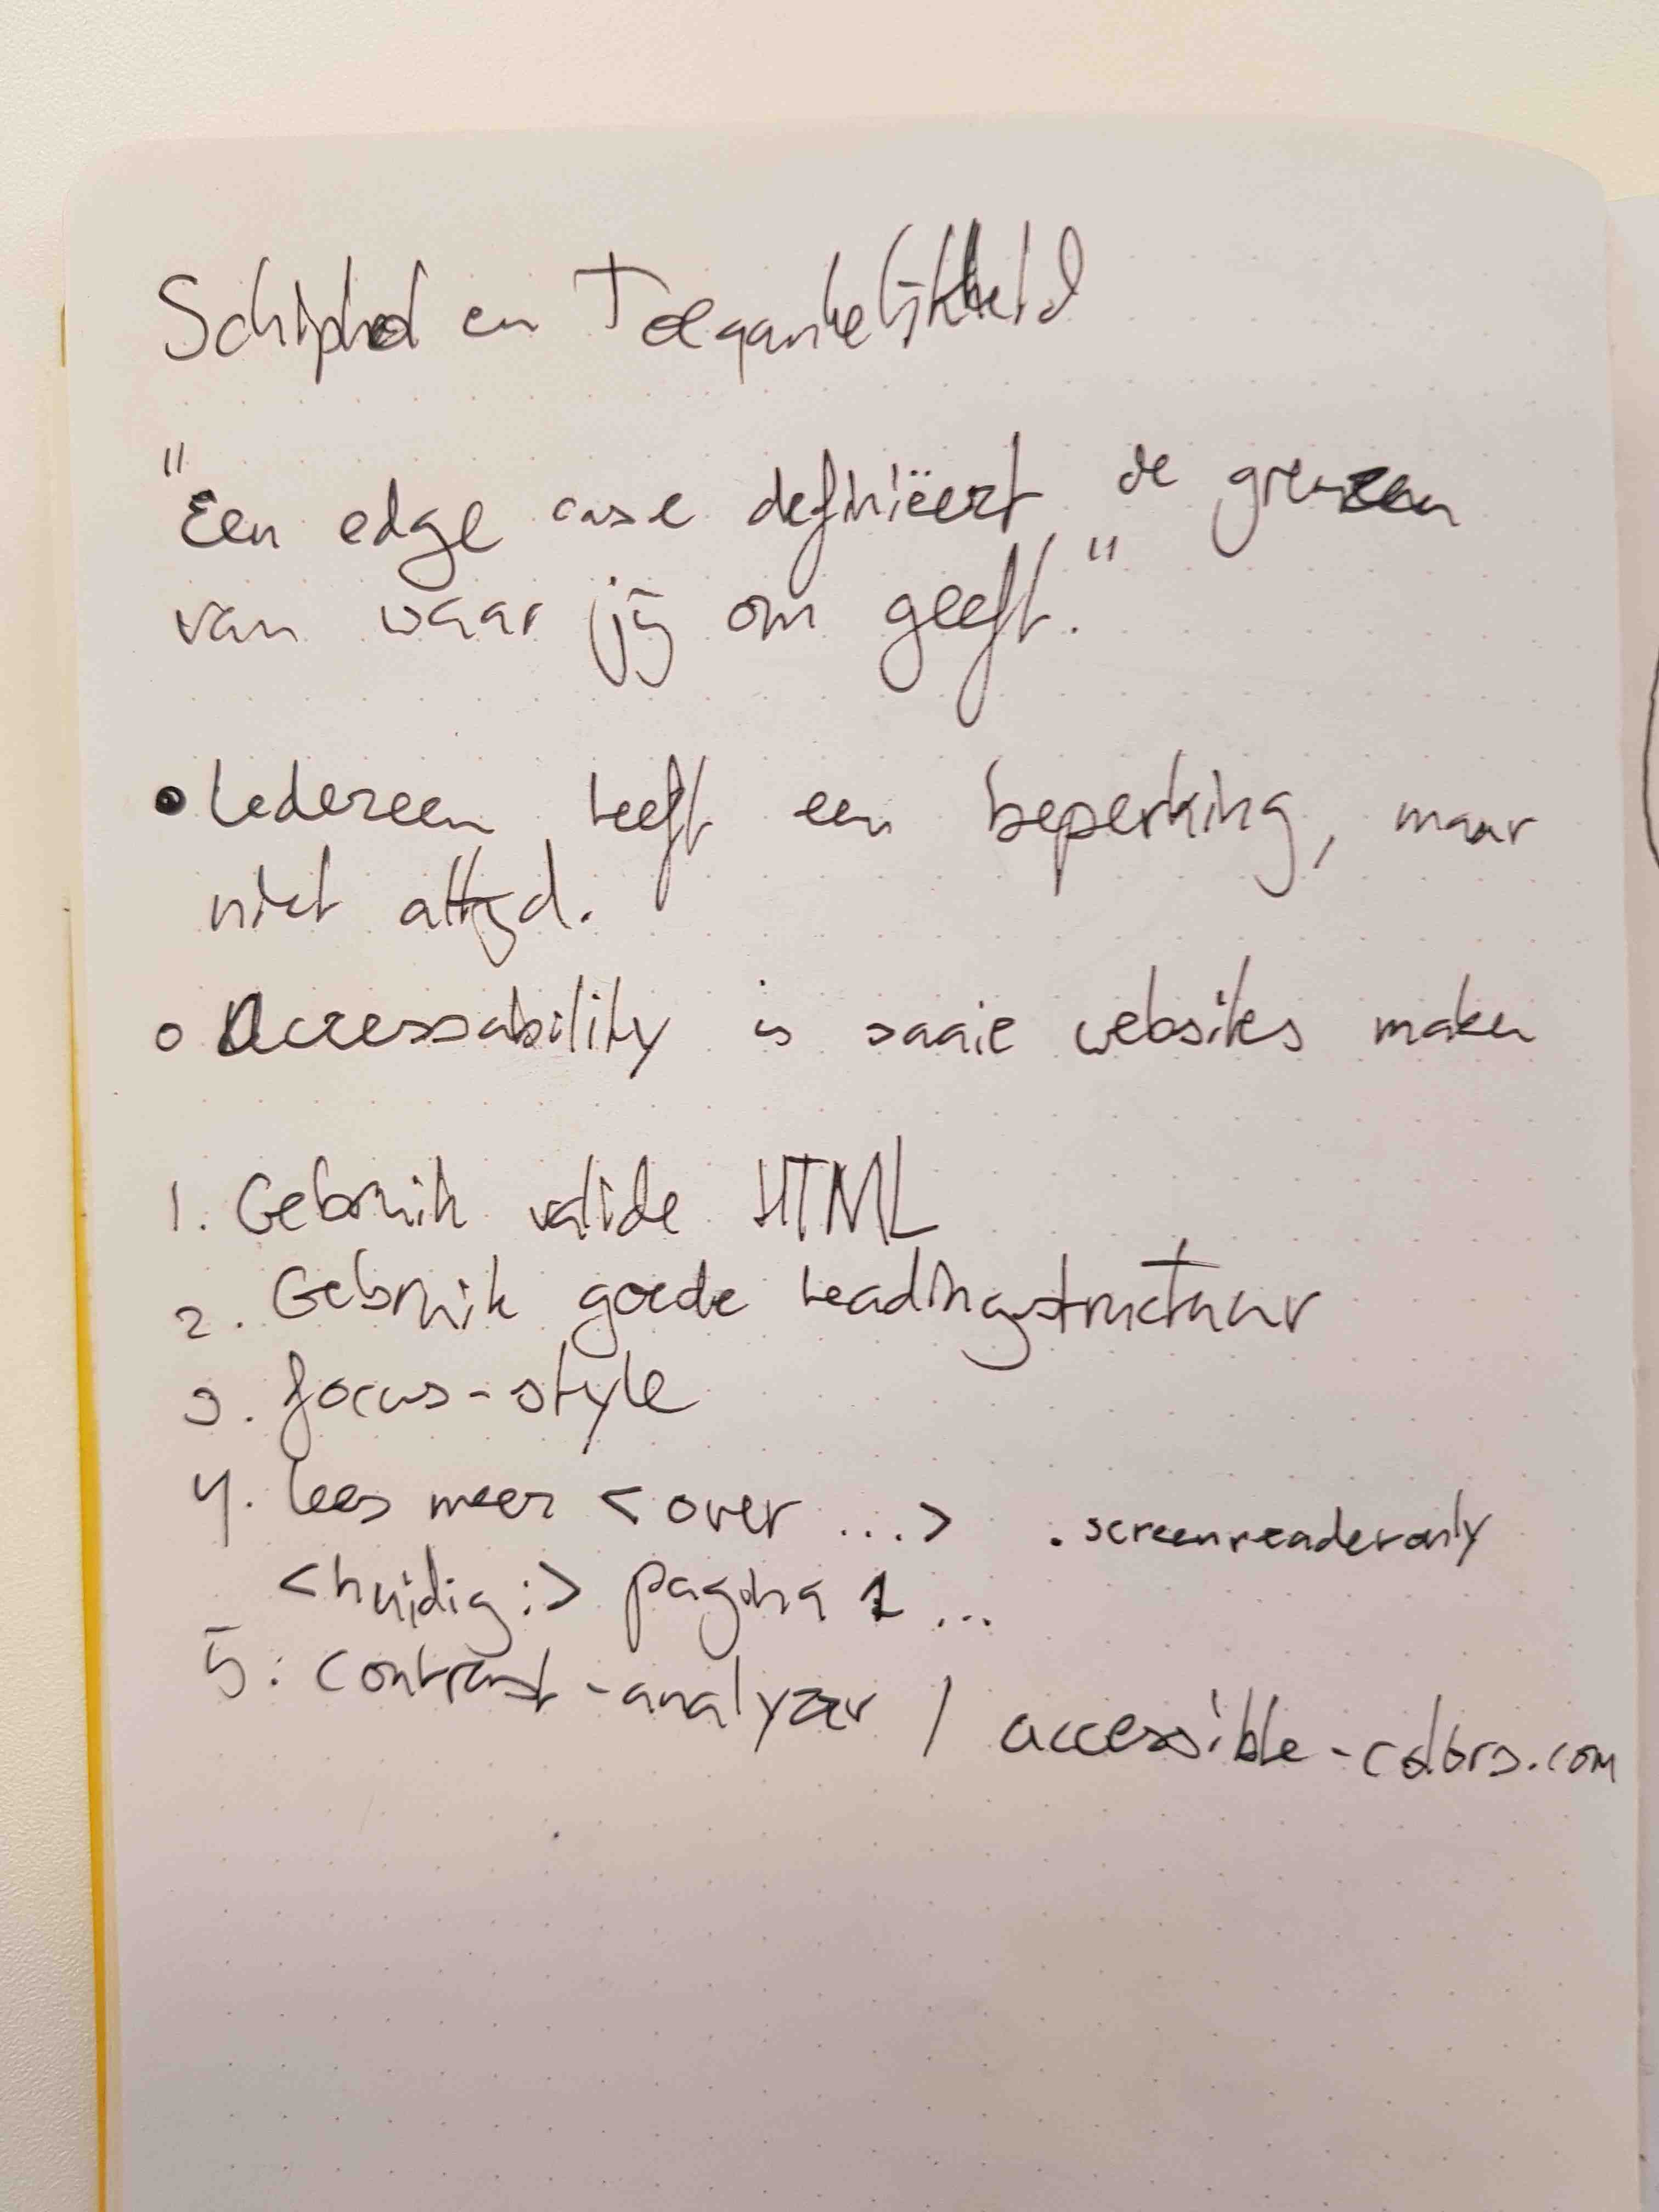 Schiphol en Toegankelijkheid
"Een edge case definiëert de grenzen
van waar jij om geeft."
• Iedereen heeft een beperking, maar
niet altijd.
o Accessability is saaie websites maken
1. Gebruik valide HTML
2. Gebruik goede headingstructuur
3. focus-style
4. lees meer <over ...> .screenreaderonly
<huidig:> pagina 1 ...
5. contrast-analyzer / accessible-colors.com